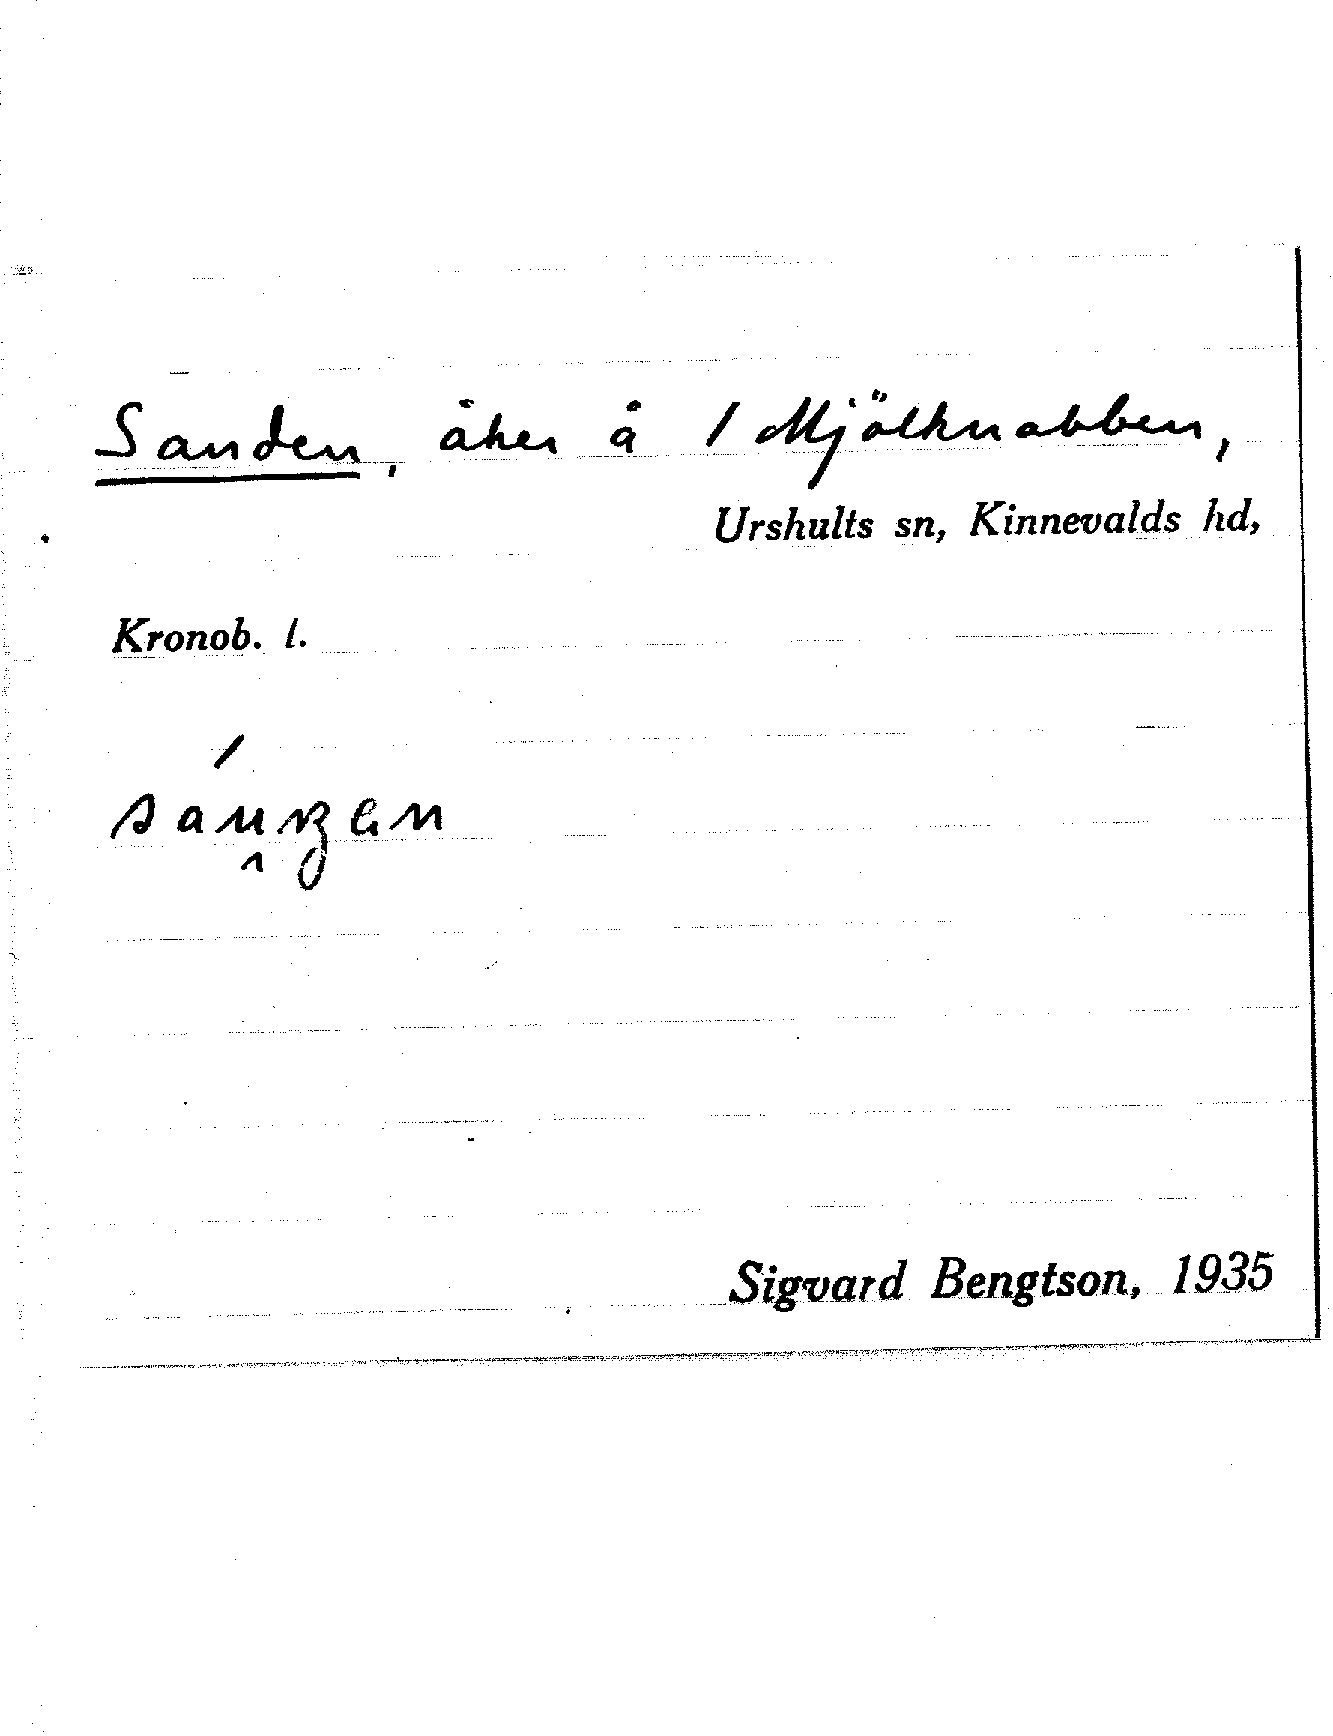 Sanden, åker å 1 Mjölknabben,
Urshults sn, Kinnevalds hd,
Kronob. l.
Sigvard Bengtson, 1935